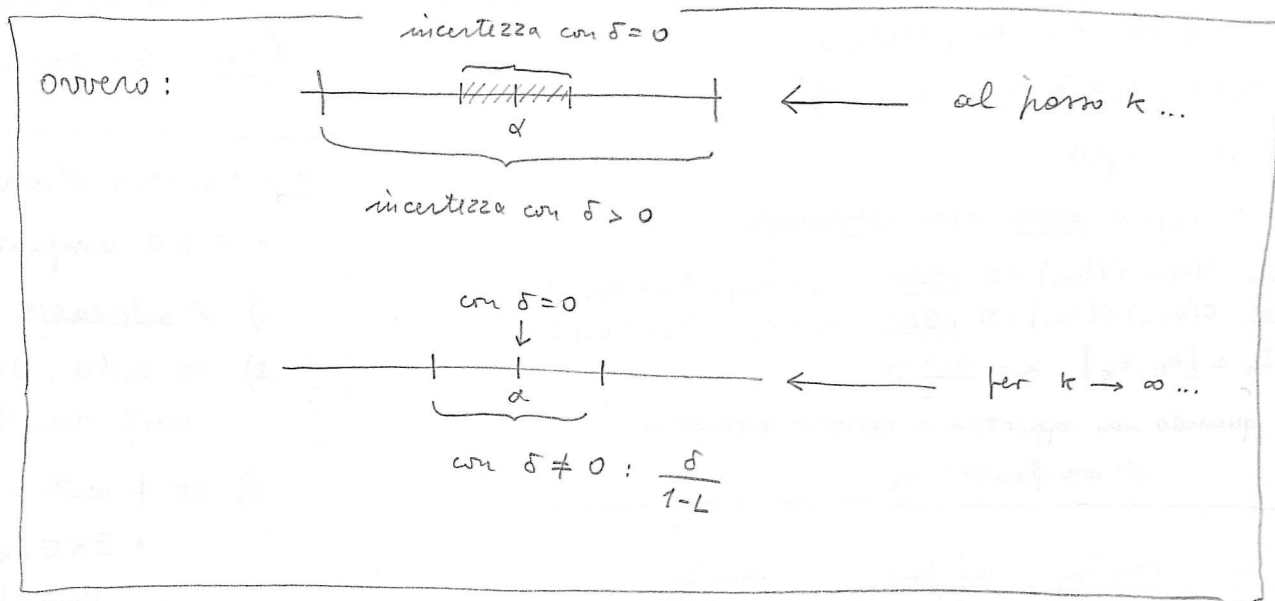 incertezza con δ=0
ovvero:
α
al passo k...
incertezza con δ > 0
con δ=0
α
per k → ∞...
con δ ≠ 0 : δ/(1-L)